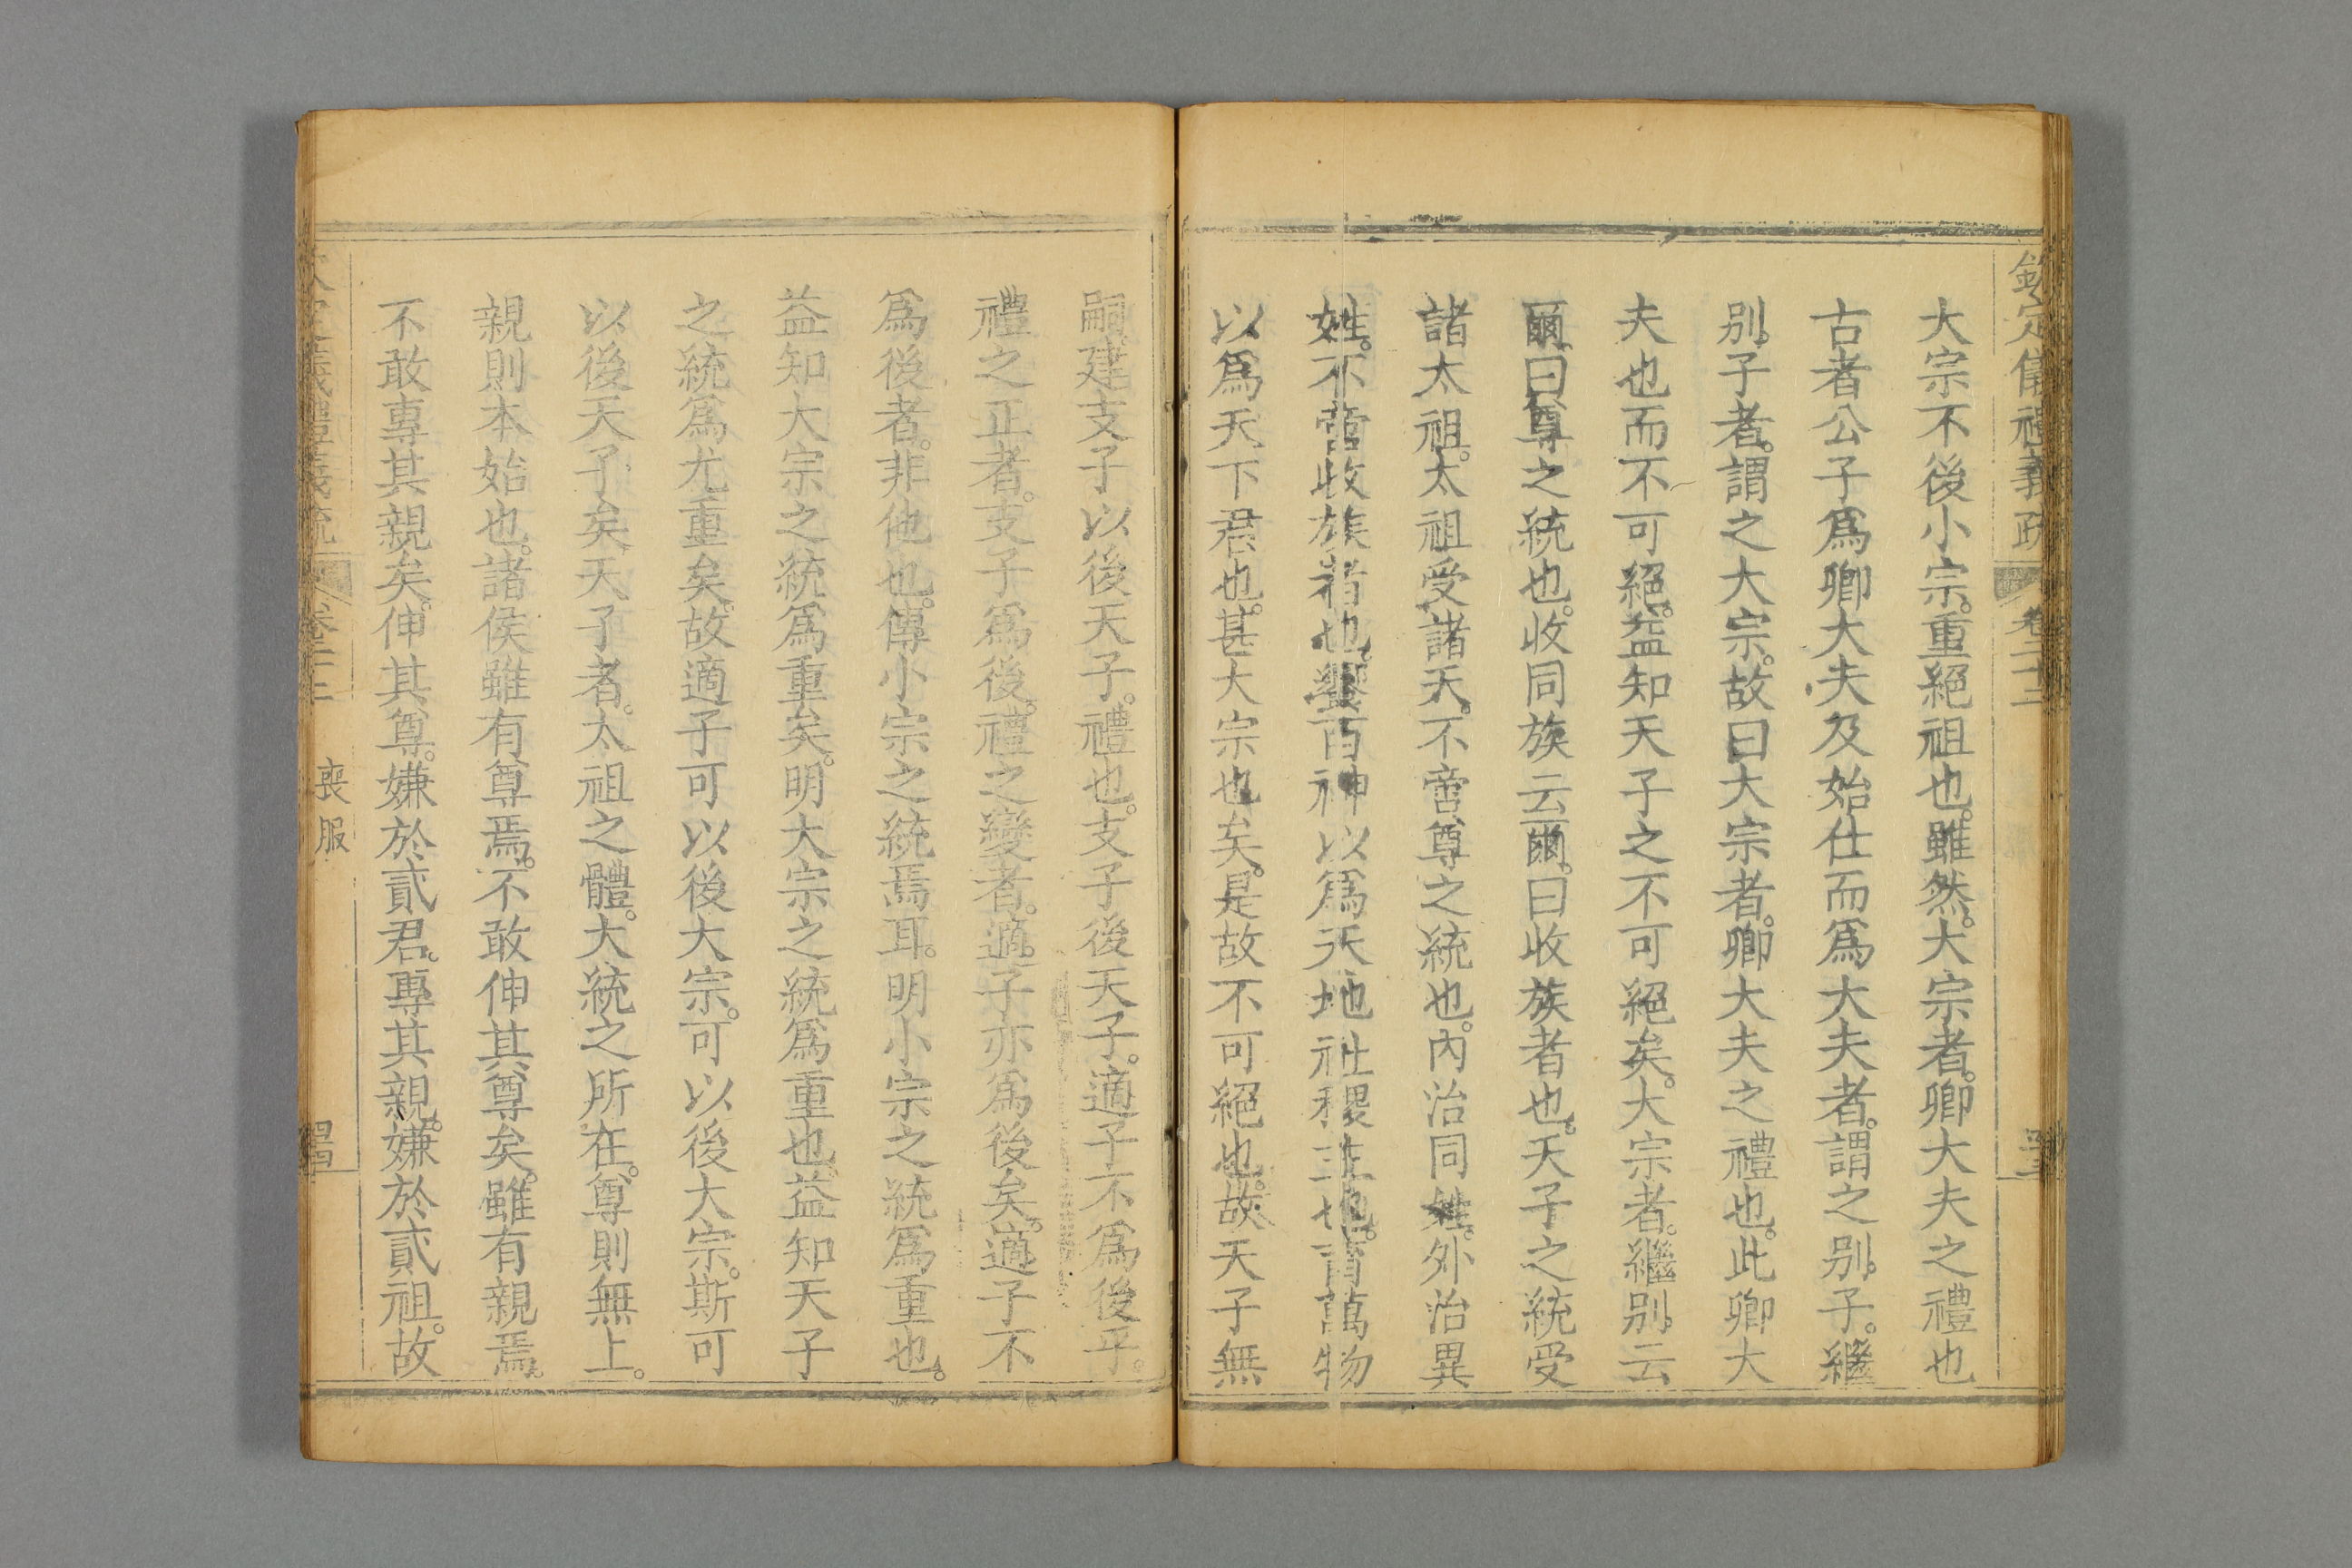 欽定儀禮義疏 卷二十二
大宗不後小宗。重絕祖也。雖然。大宗者。卿大夫之禮也
古者公子爲卿大夫及始仕而爲大夫者。謂之别子。繼
别子者。謂之大宗。故曰大宗者。卿大夫之禮也。此卿大
夫也而不可絕。益知天子之不可絕矣。大宗者。繼别云
爾。曰尊之統也。收同族云爾。曰收族者也。天子之統受
諸太祖。太祖受諸天。不啻尊之統也。內治同姓。外治異
姓。不啻收族者也。饗百神以爲天地社稷主也。育萬物
以爲天下君也。甚大宗也矣。是故不可絕也。故天子無
嗣。建支子以後天子。禮也。支子後天子。適子不爲後乎。
禮之正者。支子爲後。禮之變者。適子亦爲後矣。適子不
爲後者。非他也。傳小宗之統焉耳。明小宗之統爲重也。
益知大宗之統爲重矣。明大宗之統爲重也。益知天子
之統爲尤重矣。故適子可以後大宗。可以後大宗。斯可
以後天子矣。天子者。太祖之體。大統之所在。尊則無上。
親則本始也。諸侯雖有尊焉。不敢伸其尊矣。雖有親焉。
不敢專其親矣。伸其尊。嫌於貳君。專其親。嫌於貳祖。故
欽定儀禮義疏 卷二十二 喪服